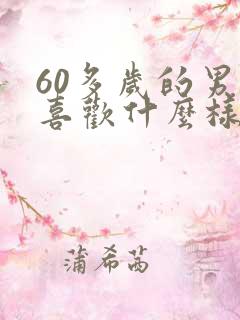 60多歲的男
喜歡什麼樣
蒲希茜